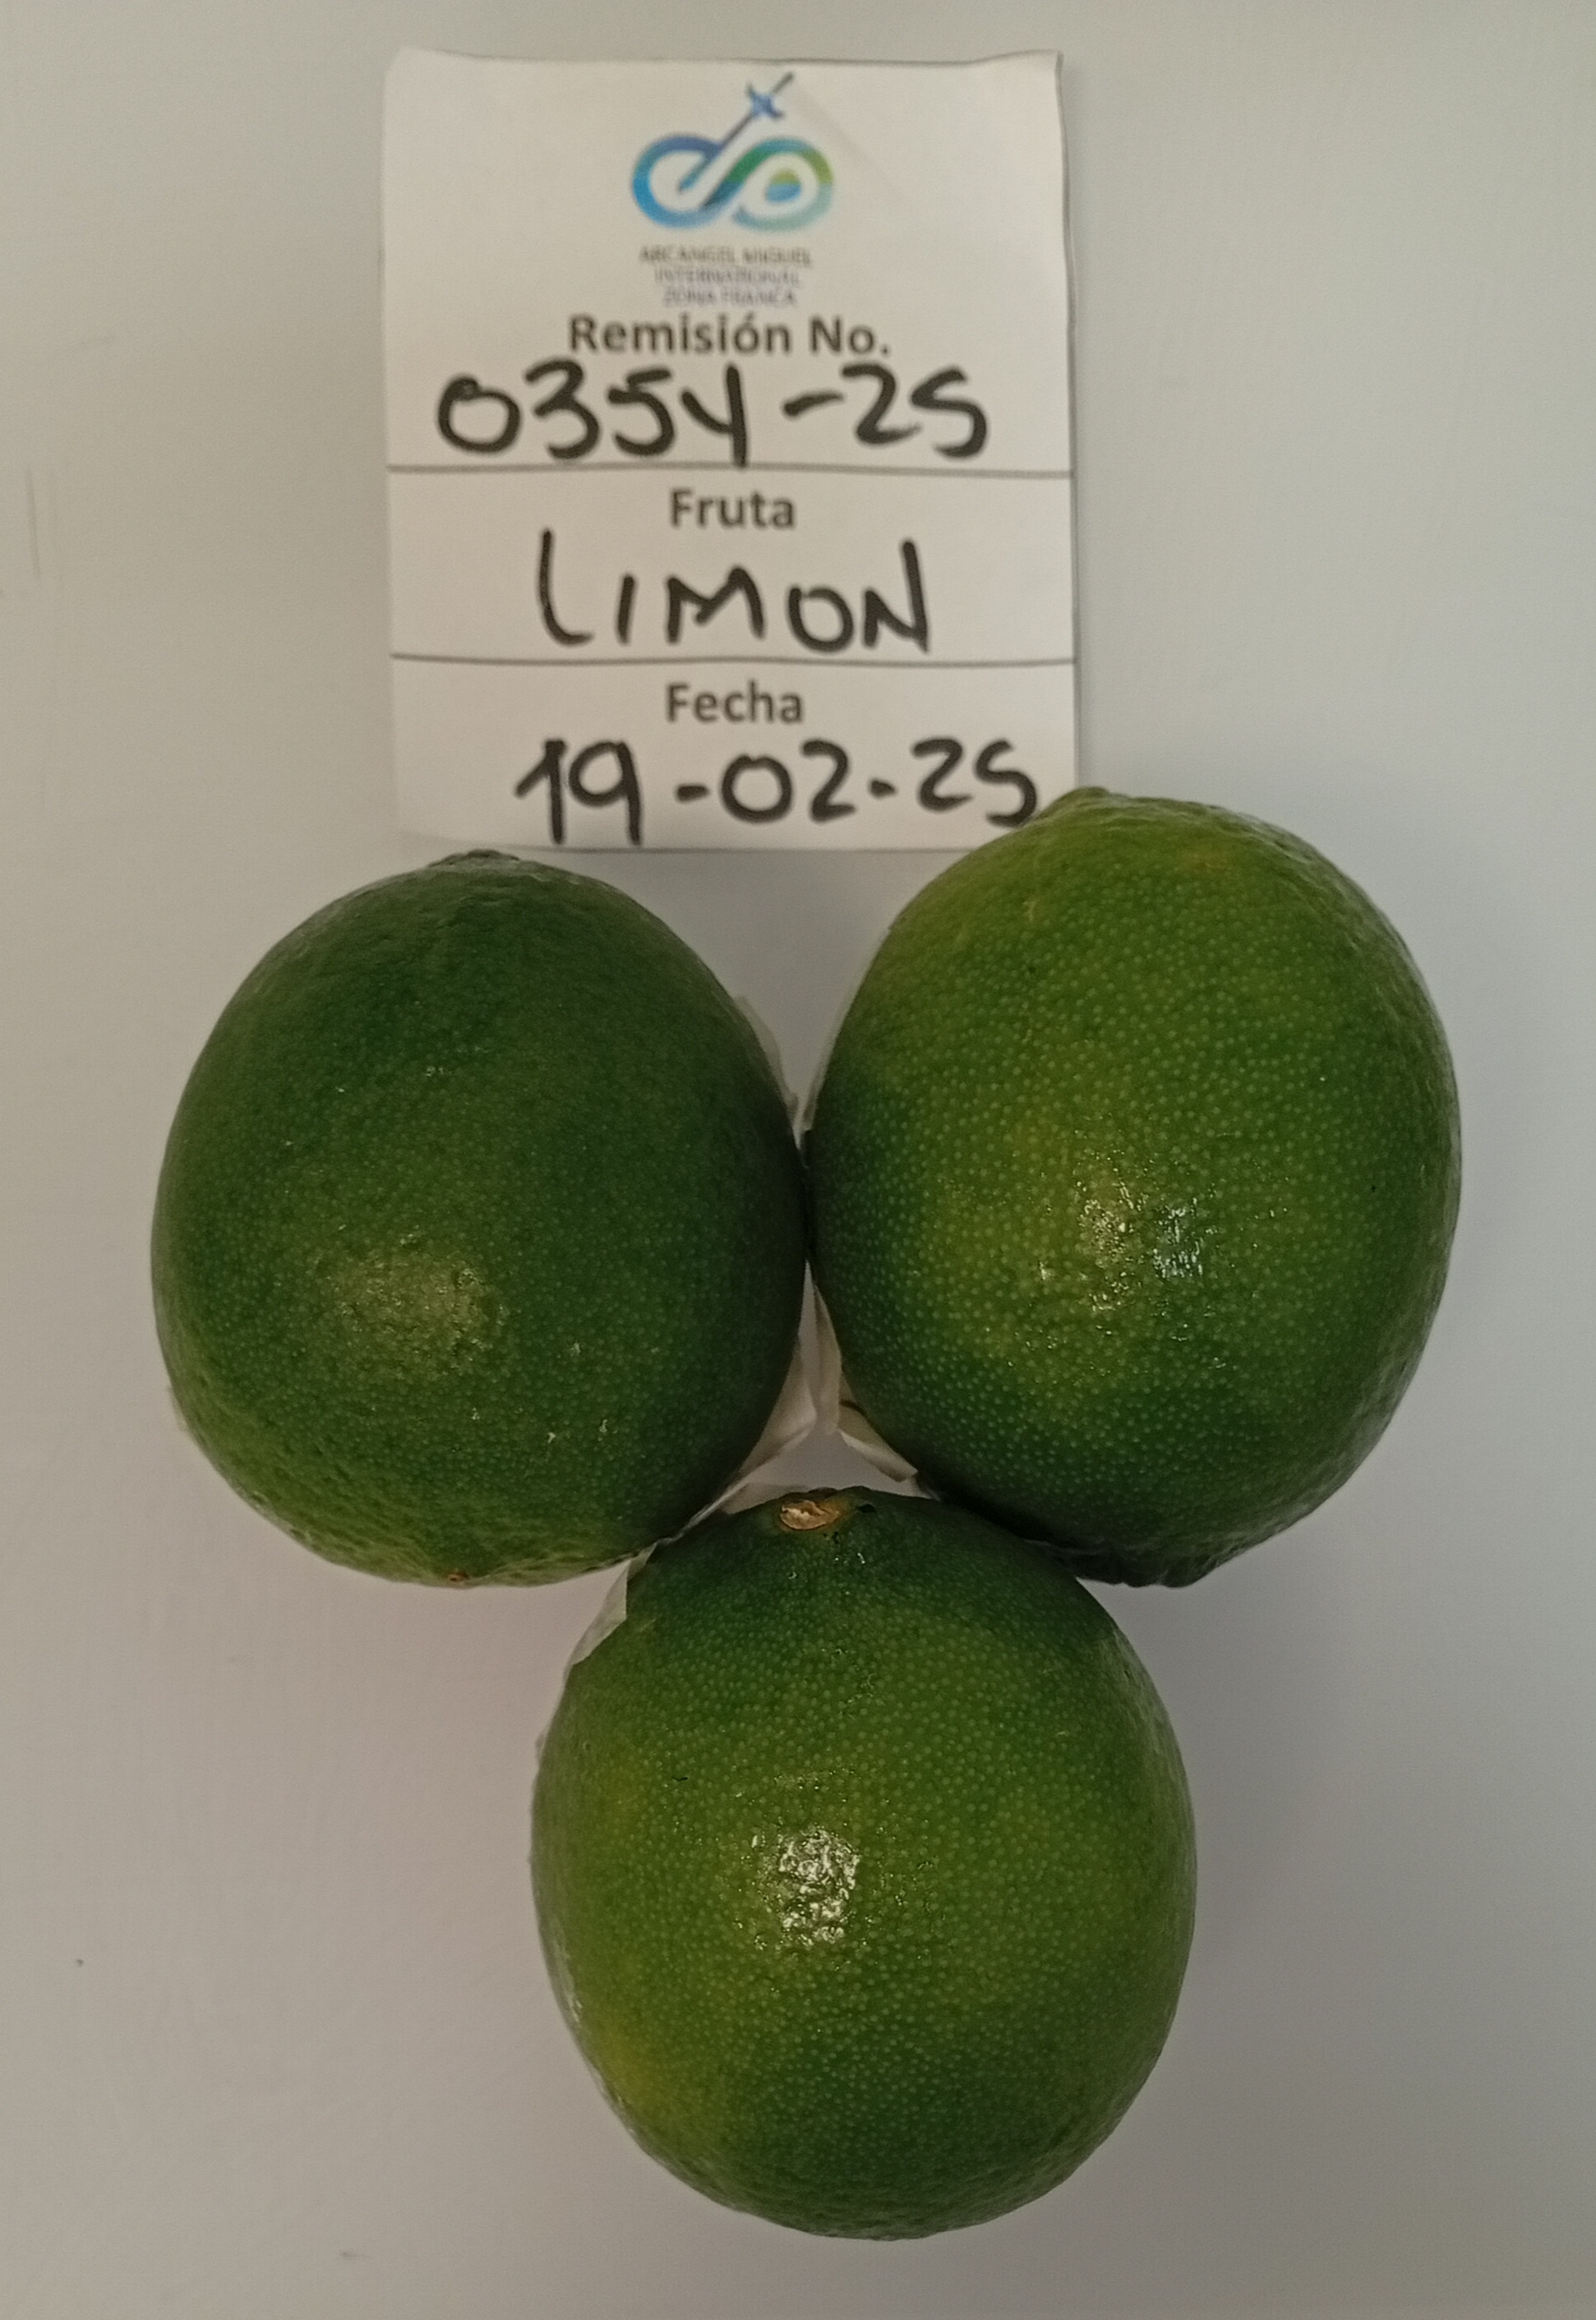 ARCANGEL MIGUEL
INTERNATIONAL
ZONA FRANCA
Remisión No.
0354-25
Fruta
LIMON
Fecha
19-02-25